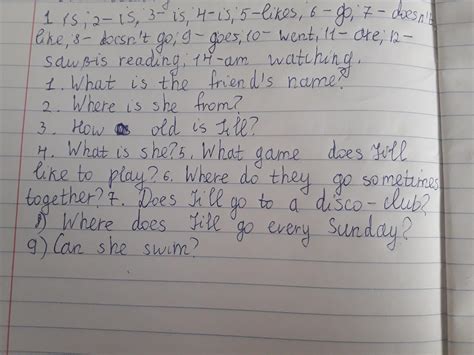 1 is; 2 - is, 3 - is, 4 - is; 5 - likes, 6 - go; 7 - doesn't
like, 8 - doesn't go; 9 - goes, 10 - went, 11 - are; 12 -
saw, is reading; 14 - am watching.
1. What is the friend's name?
2. Where is she from?
3. How old is Jill?
4. What is she? 5. What game does Jill
like to play? 6. Where do they go sometimes
together? 7. Does Jill go to a disco-club?
8) Where does Jill go every Sunday?
9) Can she swim?